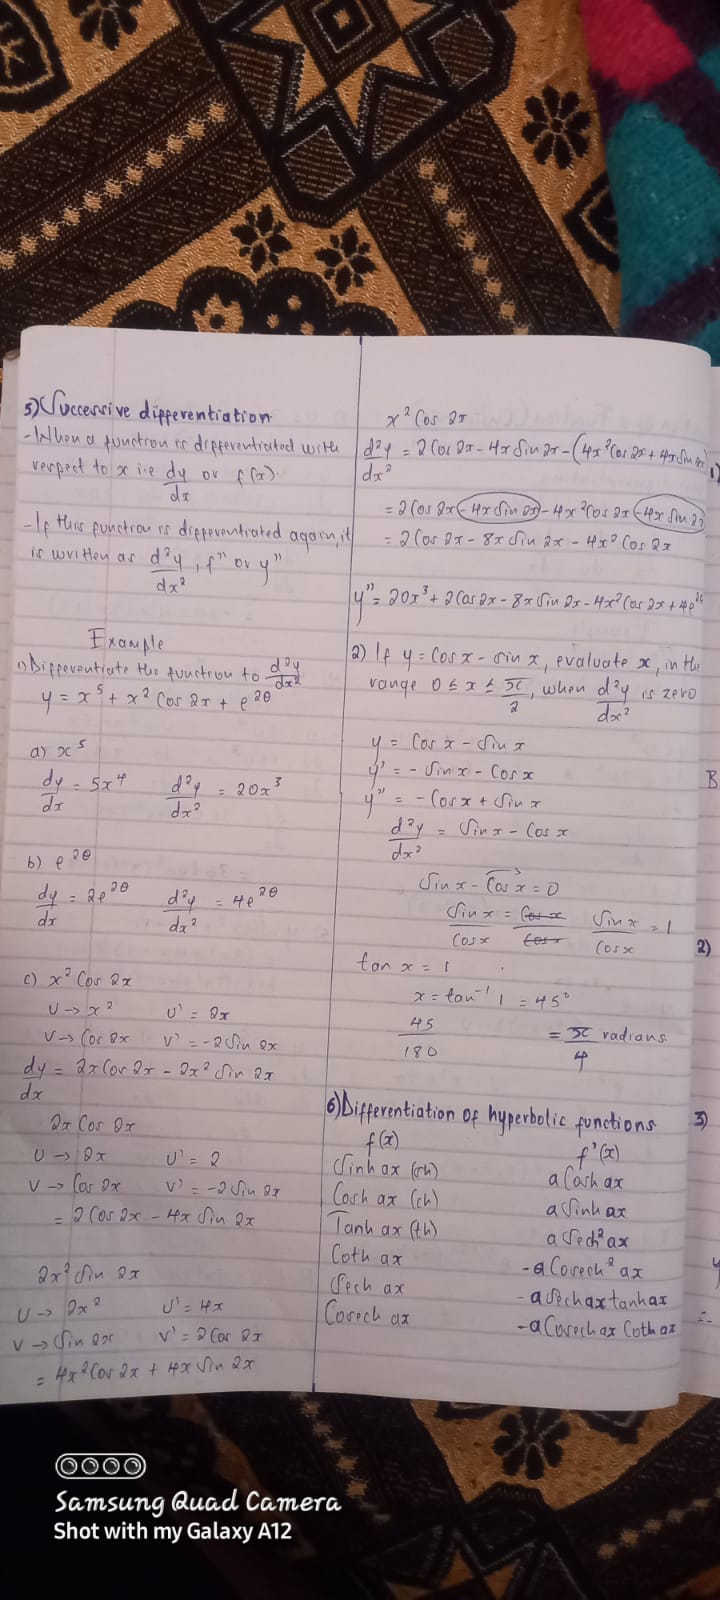 5) Successive differentiation
- When a function is differentiated with
respect to x i.e dy/dx or f(x).
- If this function is differentiated again, it
is written as d²y/dx², f'' or y''
Example
1) Differentiate the function to d²y/dx²
y = x⁵ + x² Cos 2x + e^2θ
a) x⁵
dy/dx = 5x⁴ d²y/dx² = 20x³
b) e^2θ
dy/dx = 2e^2θ d²y/dx² = 4e^2θ
c) x² Cos 2x
U → x² U' = 2x
V → Cos 2x V' = -2 Sin 2x
dy/dx = 2x Cos 2x - 2x² Sin 2x
2x Cos 2x
U → 2x U' = 2
V → Cos 2x V' = -2 Sin 2x
= 2 Cos 2x - 4x Sin 2x
2x² Sin 2x
U → 2x² U' = 4x
V → Sin 2x V' = 2 Cos 2x
= 4x² Cos 2x + 4x Sin 2x
x² Cos 2x
d²y/dx² = 2 Cos 2x - 4x Sin 2x - (4x² Cos 2x + 4x Sin 2x)
= 2 Cos 2x - 4x Sin 2x - 4x² Cos 2x - 4x Sin 2x
= 2 Cos 2x - 8x Sin 2x - 4x² Cos 2x
y'' = 20x³ + 2 Cos 2x - 8x Sin 2x - 4x² Cos 2x + 4e^2θ
2) If y = Cos x - Sin x, evaluate x, in the
range 0 ≤ x ≤ π/2, when d²y/dx² is zero
y = Cos x - Sin x
y' = - Sin x - Cos x
y'' = - Cos x + Sin x
d²y/dx² = Sin x - Cos x
Sin x - Cos x = 0
Sin x/Cos x = Cos x/Cos x Sin x/Cos x = 1
tan x = 1
x = tan⁻¹ 1 = 45°
45/180 = π/4 radians
6) Differentiation of hyperbolic functions
f(x) f'(x)
Sinh ax (sh) a Cosh ax
Cosh ax (ch) a Sinh ax
Tanh ax (th) a Sech² ax
Coth ax -a Cosech² ax
Sech ax -a Sech ax tanh ax
Cosech ax -a Cosech ax Coth ax
1)
B
2)
3)
y
∴
Samsung Quad Camera
Shot with my Galaxy A12